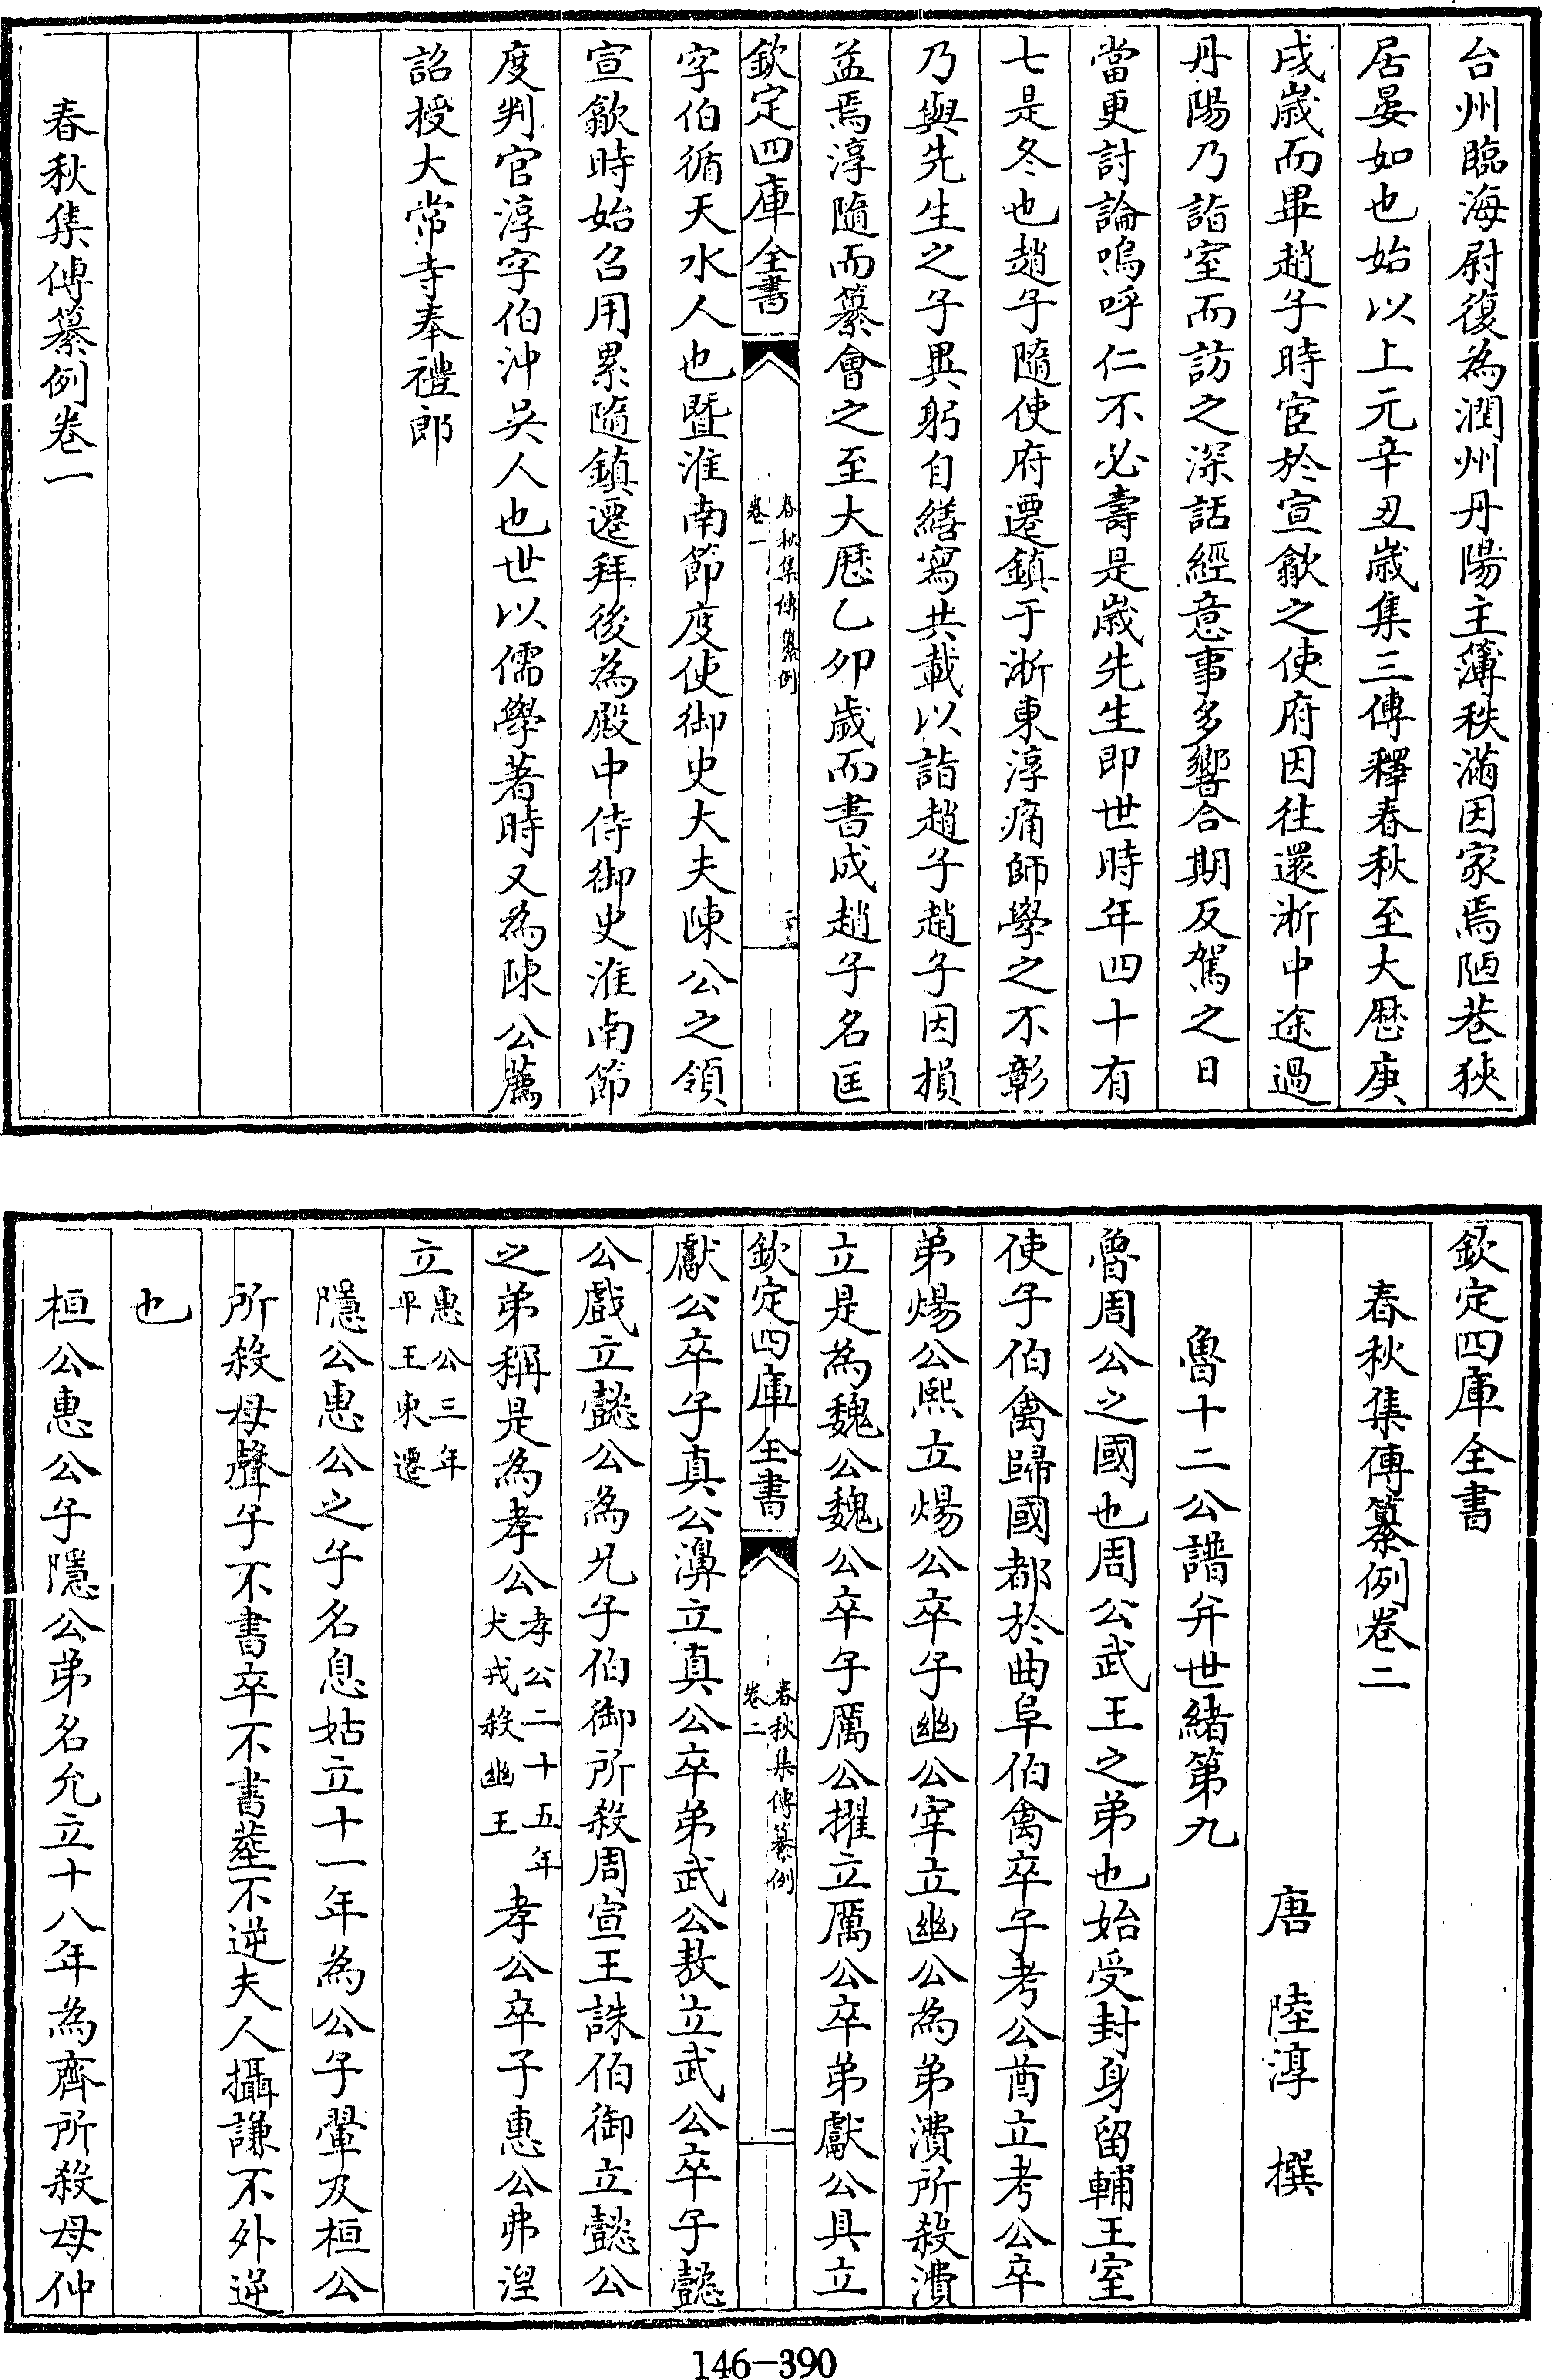 台州臨海尉復為潤州丹陽主簿秩滿因家焉陋巷狹
居晏如也始以上元辛丑歲集三傳釋春秋至大厯庚
戌歲而畢趙子時宦於宣歙之使府因往還浙中途過
丹陽乃詣室而訪之深話經意事多響合期反駕之日
當更討論嗚呼仁不必壽是歲先生即世時年四十有
七是冬也趙子隨使府遷鎮于浙東淳痛師學之不彰
乃與先生之子異躬自繕寫共載以詣趙子趙子因損
益焉淳隨而纂會之至大厯乙卯歲而書成趙子名匡
欽定四庫全書
春秋集傳纂例
卷一
字伯循天水人也暨淮南節度使御史大夫陳公之領
宣歙時始召用累隨鎮遷拜後為殿中侍御史淮南節
度判官淳字伯沖吳人也世以儒學著時又為陳公薦
詔授大常寺奉禮郎
春秋集傳纂例卷一
欽定四庫全書
春秋集傳纂例卷二
唐 陸淳 撰
魯十二公譜并世緒第九
魯周公之國也周公武王之弟也始受封身留輔王室
使子伯禽歸國都於曲阜伯禽卒子考公酋立考公卒
弟煬公熙立煬公卒子幽公宰立幽公為弟潰所殺潰
立是為魏公魏公卒子厲公擢立厲公卒弟獻公具立
欽定四庫全書
春秋集傳纂例
卷二
二
獻公卒子真公濞立真公卒弟武公敖立武公卒子懿
公戲立懿公為兄子伯御所殺周宣王誅伯御立懿公
之弟稱是為孝公孝公二十五年犬戎殺幽王孝公卒子惠公弗湟
立惠公三年平王東遷
隱公惠公之子名息姑立十一年為公子翬及桓公
所殺母聲子不書卒不書塟不逆夫人攝謙不外逆
也
桓公惠公子隱公弟名允立十八年為齊所殺母仲
146-390